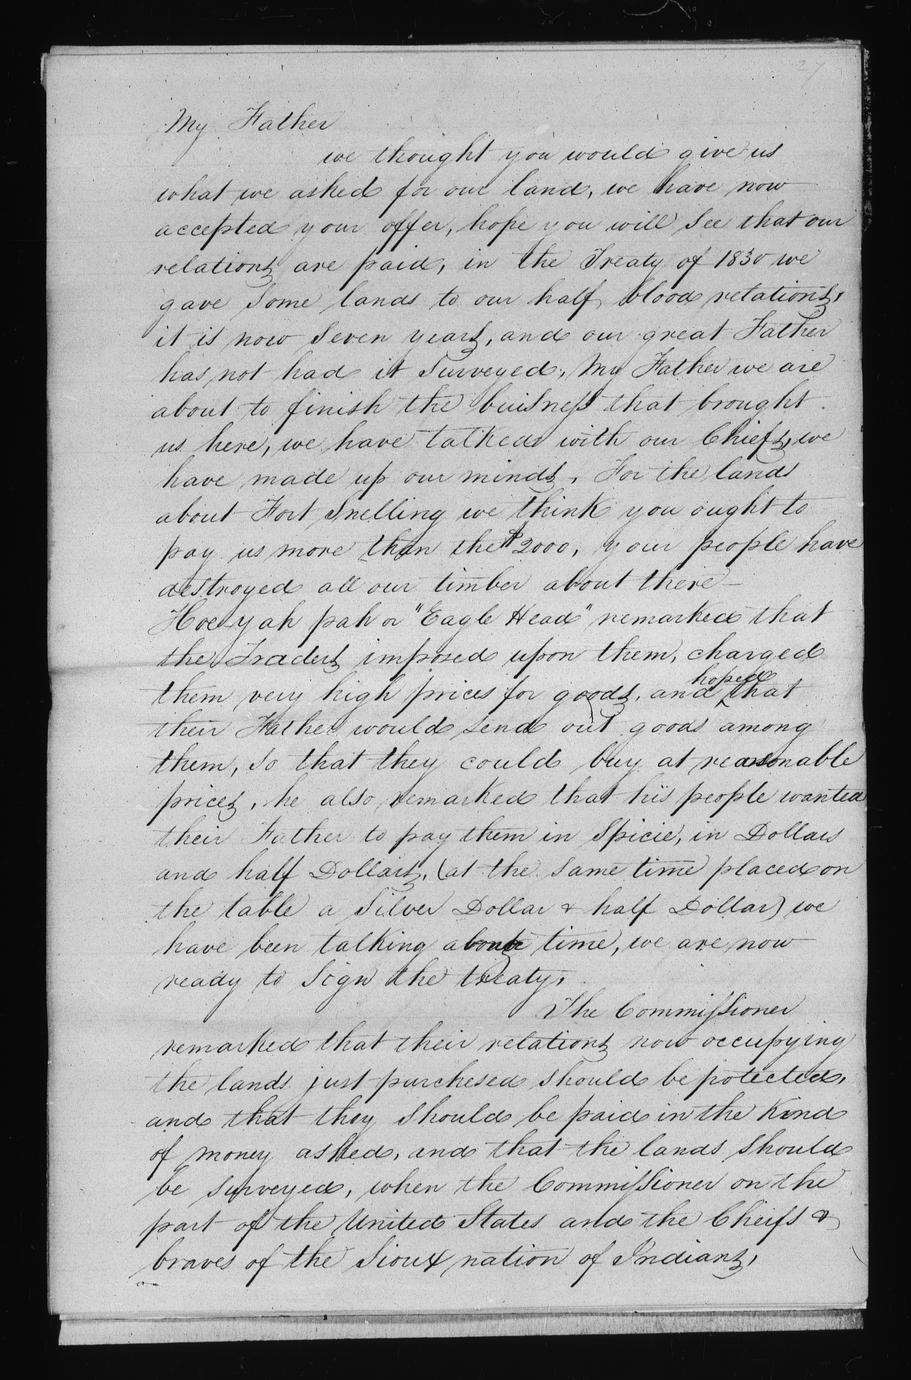 27
My Father
we thought you would give us
what we asked for our land, we have now
accepted your offer, hope you will See that our
relations are paid, in the Treaty of 1830 we
gave Some lands to our half blood relations,
it is now Seven years, and our great Father
has not had it Surveyed, My Father we are
about to finish the buisness that brought
us here, we have talked with our Chiefs, we
have made up our minds, For the lands
about Fort Snelling we think you ought to
pay us more than the $2000, your people have
destroyed all our timber about there—
Hoe yah pah or "Eagle Head" remarked that
the Traders imposed upon them, charged
them very high prices for goods, and hoped that
their Father would Send out goods among
them, So that they could buy at reasonable
prices, he also remarked that his people wanted
their Father to pay them in Spicie, in Dollars
and half Dollars, (at the Same time placed on
the table a Silver Dollar & half Dollar) we
have been talking a time, we are now
ready to Sign the treaty,
The Commissioner
remarked that their relations now occupying
the lands just purchesed should be potected,
and that they should be paid in the Kind
of money asked, and that the lands should
be Surveyed, when the Commissioner on the
part of the United States and the Cheifs &
braves of the Sioux nation of Indians,